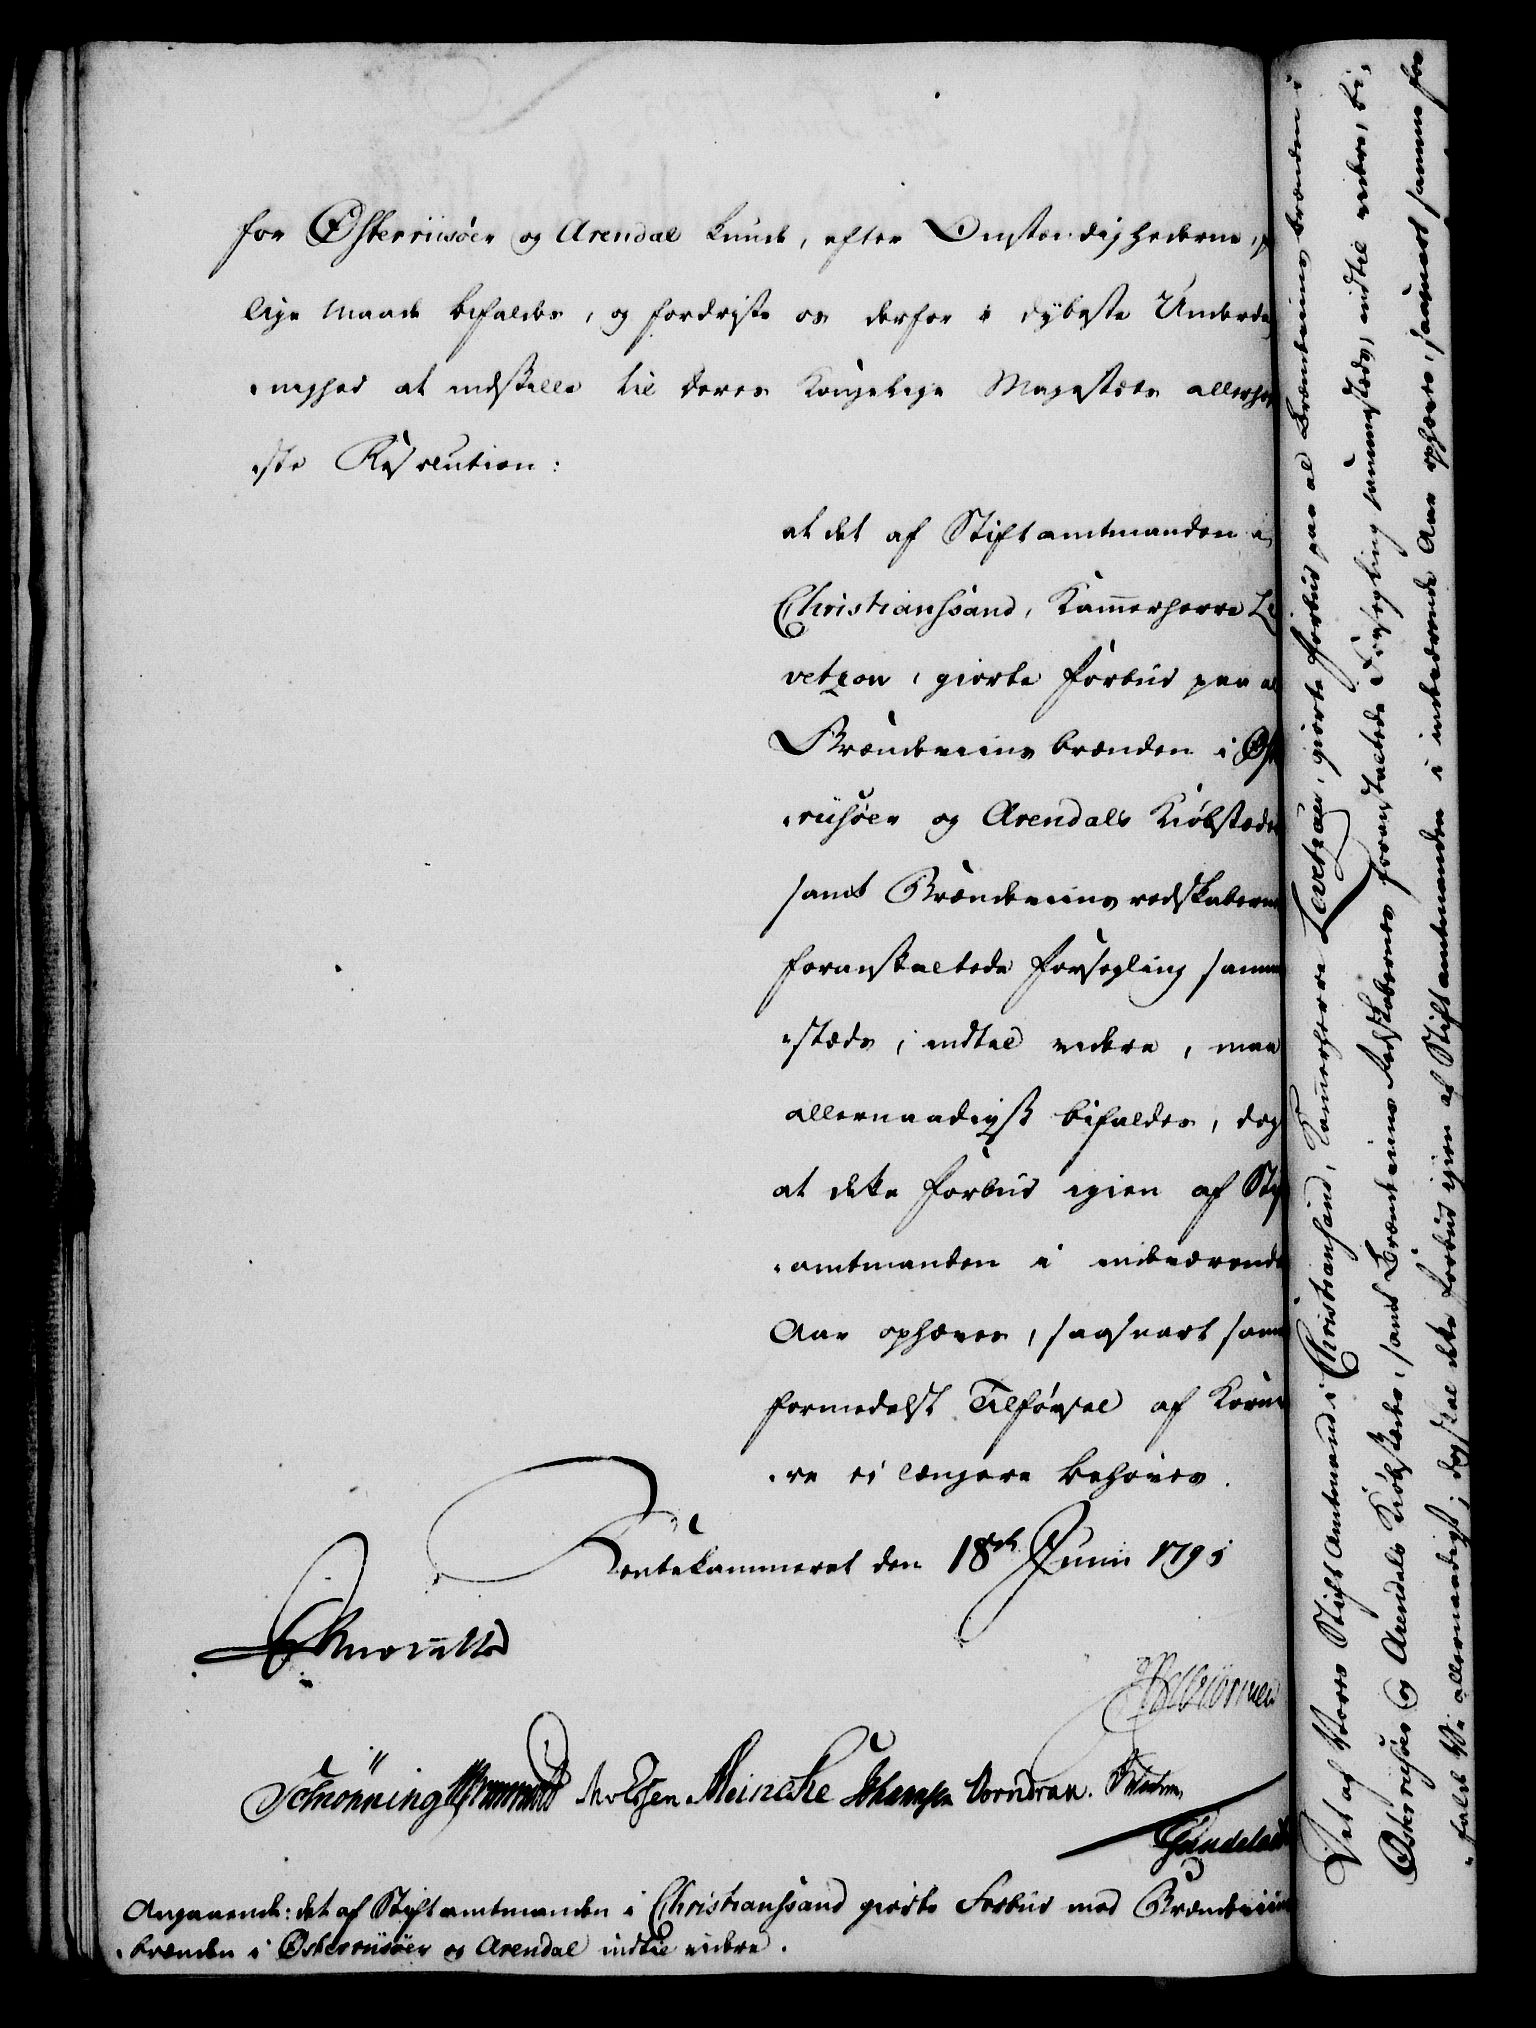 for Østerriisöer og Arendal kunde, efter Omstændighederne, p
lige Maade bifaldes, og fordriste os derfor i dybeste Underda
„nighed at indstille til Deres Kongelige Majestæts allerhøi
„ste Resolution:
at det af Stiftamtmanden i
Christianssand, Kammerherre Le
vetzow, giorte Forbud paa al
Brændeviinsbrænden i Øste
„riisöer og Arendals Kiöbstæder
samt Brændeviinsredskabernes
foranstaltede Forsegling samme
„stæds, indtil videre, maa
allernaadigst bifaldes, dog
at dette Forbud igien af Stift
„amtmanden i indeværende
Aar ophæves, saasnart samme
formedelst Tilförsel af Korn
„re ei længere behöves.
Rentekammeret den 18de Junii 1795
Schönning Meincke Vorndran.
Angaaende: det af Stiftamtmanden i Christianssand giorte Forbud mod Brændeviins
„brænden i Østerriisöer og Arendal indtil videre.
Det af Vores Stift Amtmand i Christiansand, Kammerherre Levetzow, giorte Forbud paa al Brændeviinsbrænden i
Österriisöer og Arendals Kiöbstæder, samt Brændeviins Redskabernes foranstaltede Forsegling sammestæds, indtil videre, bi„
„falde Vi allernaadigst; dog skal dette Forbud igien af Stiftamtmanden i indeværende Aar ophæves, saasnart samme for